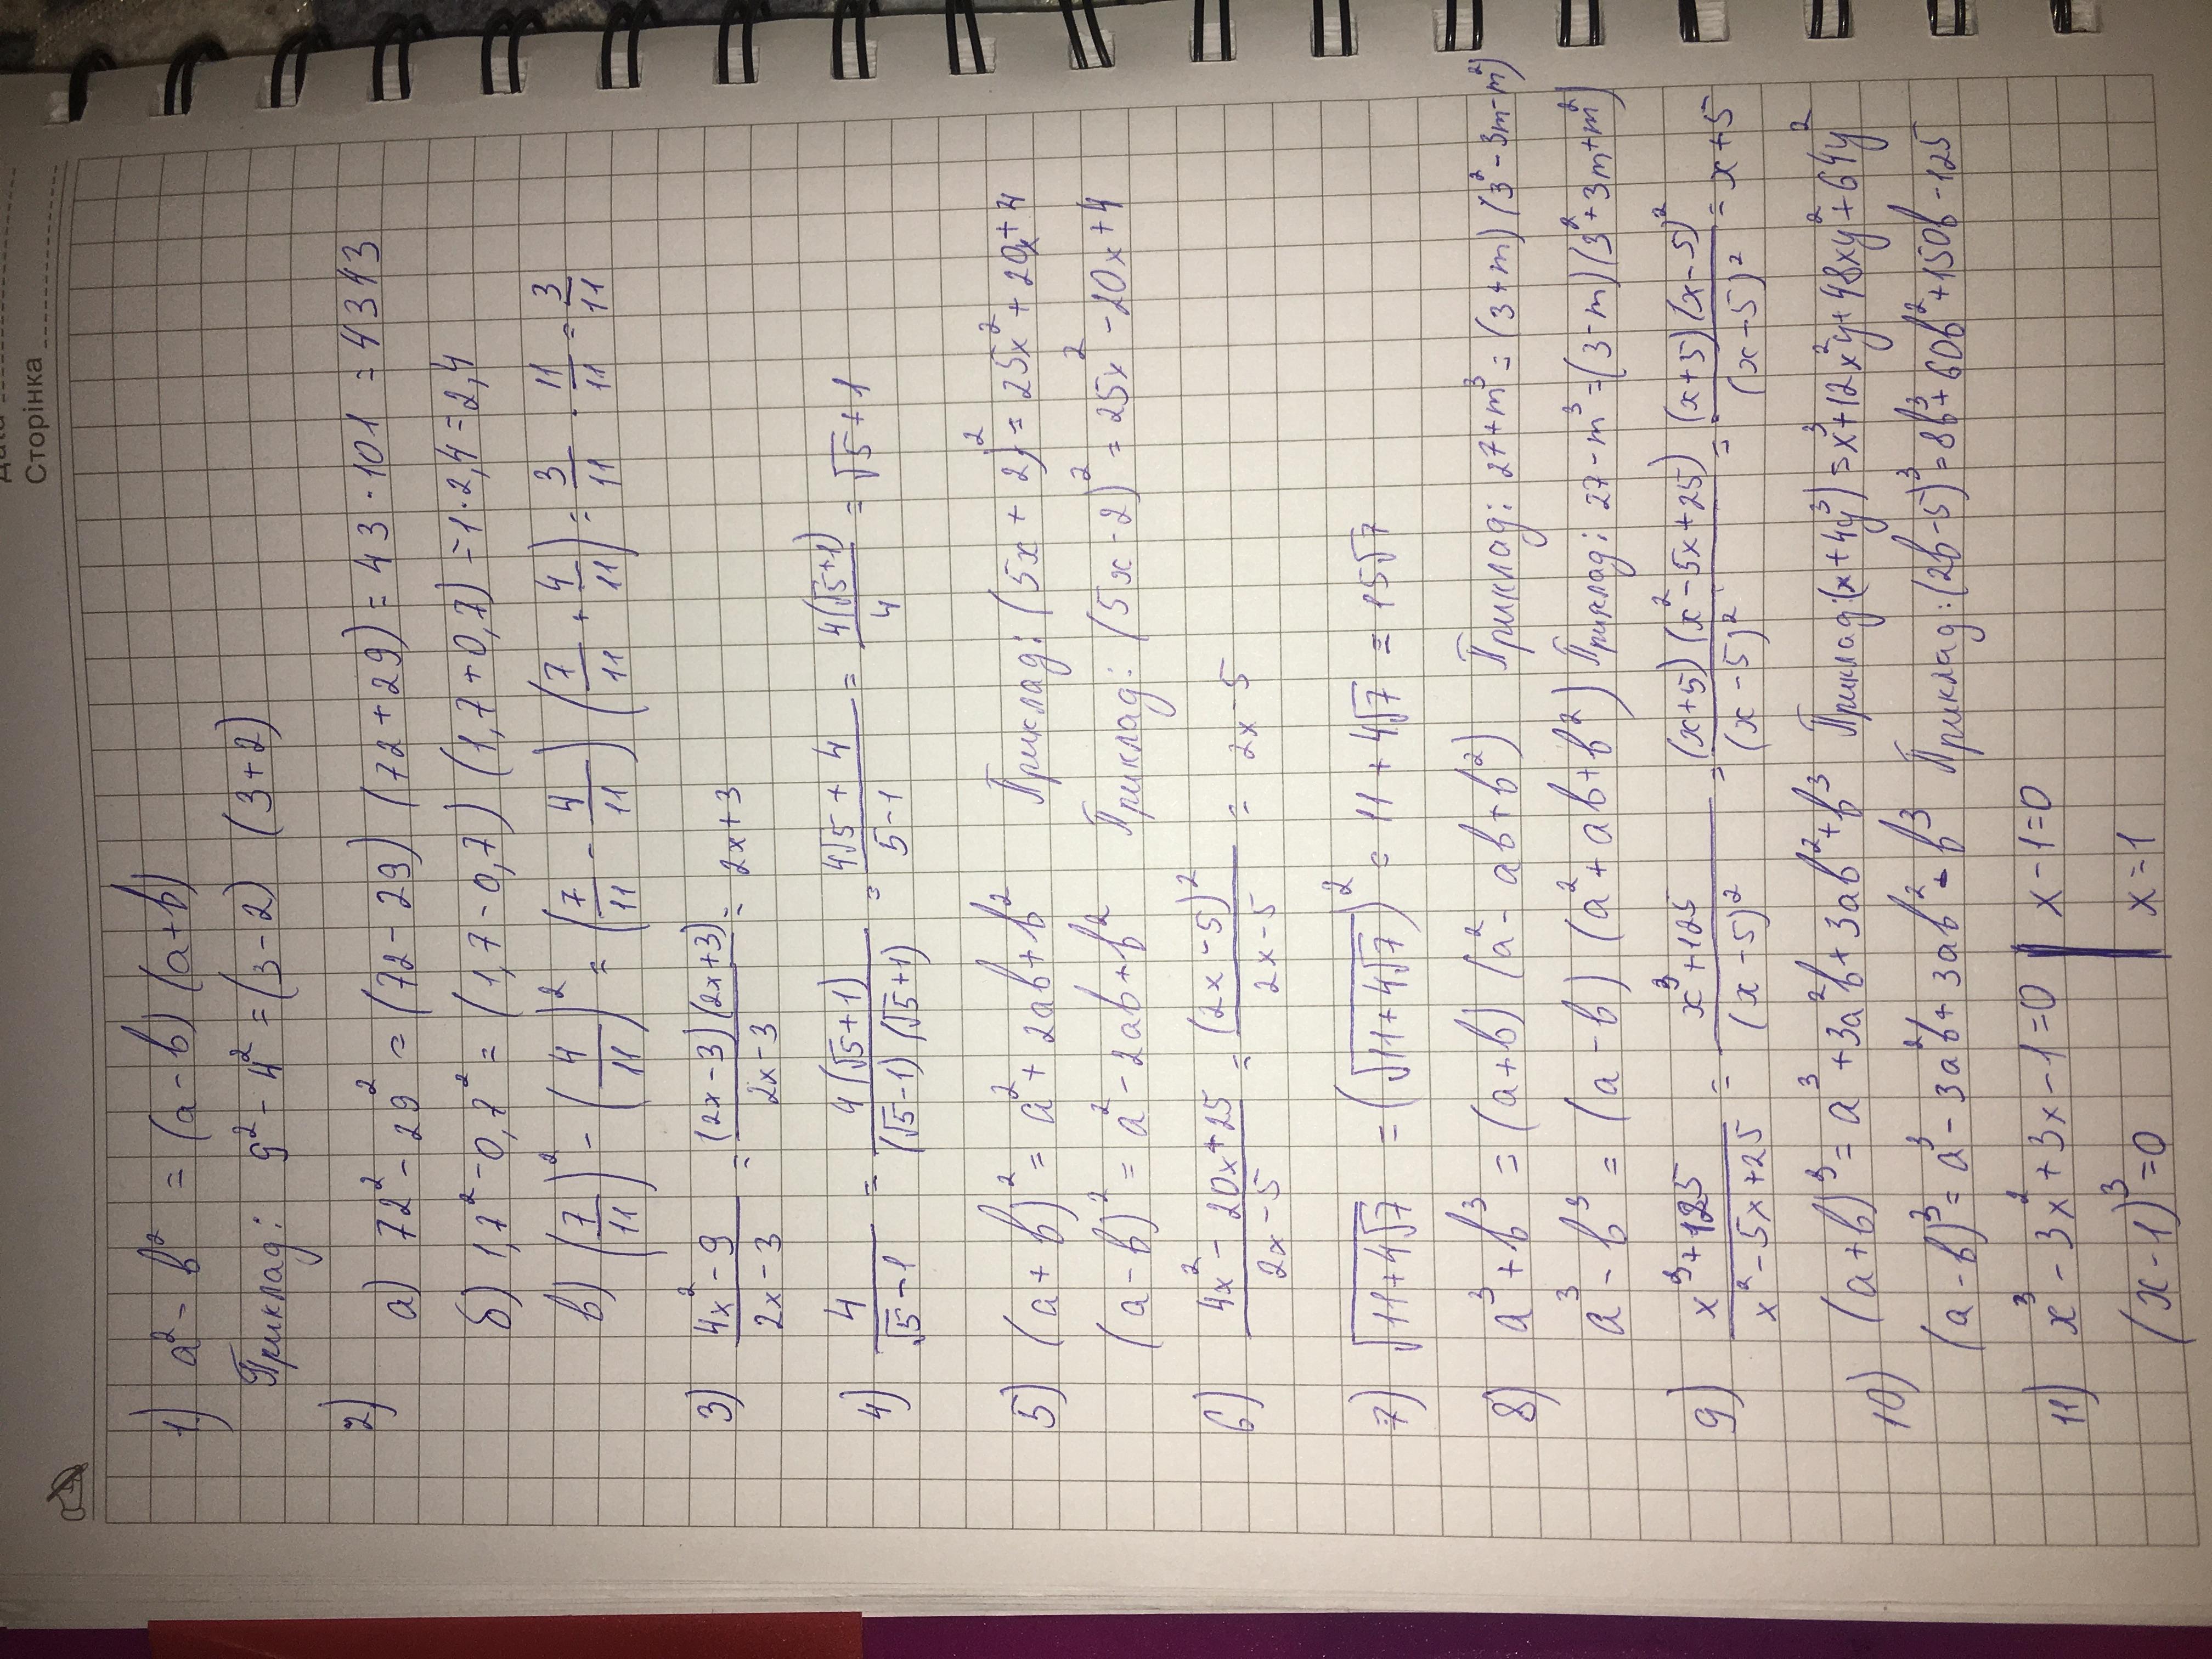 Сторінка
1) a² - b² = (a - b) (a + b)
Приклад: 9² - 4² = (3 - 2) (3 + 2)
2)
а) 72² - 29² = (72 - 29) (72 + 29) = 43 · 101 = 4343
б) 1,7² - 0,7² = (1,7 - 0,7) (1,7 + 0,7) = 1 · 2,4 = 2,4
в) (7/11)² - (4/11)² = (7/11 - 4/11) (7/11 + 4/11) = 3/11 · 11/11 = 3/11
3) (4x² - 9)/(2x - 3) = ((2x - 3)(2x + 3))/(2x - 3) = 2x + 3
4) 4/(√5 - 1) = (4(√5 + 1))/((√5 - 1)(√5 + 1)) = (4√5 + 4)/(5 - 1) = (4(√5 + 1))/4 = √5 + 1
5) (a + b)² = a² + 2ab + b² Приклад: (5x + 2)² = 25x² + 20x + 4
(a - b)² = a² - 2ab + b² Приклад: (5x - 2)² = 25x² - 20x + 4
6) (4x² - 20x + 25)/(2x - 5) = (2x - 5)²/(2x - 5) = 2x - 5
7) √(11 + 4√7) = (√(11 + 4√7))² = 11 + 4√7 = 15√7
8) a³ + b³ = (a + b) (a² - ab + b²) Приклад: 27 + m³ = (3 + m) (3² - 3m - m²)
a³ - b³ = (a - b) (a² + ab + b²) Приклад: 27 - m³ = (3 - m) (3² + 3m + m²)
9) (x³ + 125)/(x² - 5x + 25) = (x³ + 125)/(x - 5)² = ((x + 5) (x² - 5x + 25))/(x - 5)² = ((x + 5) (x - 5)²)/(x - 5)² = x + 5
10) (a + b)³ = a³ + 3a²b + 3ab² + b³ Приклад: (x + 4y³) = x³ + 12x²y + 48xy² + 64y²
(a - b)³ = a³ - 3a²b + 3ab² - b³ Приклад: (2b - 5)³ = 8b³ + 60b² + 150b - 125
11) x³ - 3x² + 3x - 1 = 0 | x - 1 = 0
(x - 1)³ = 0 | x = 1